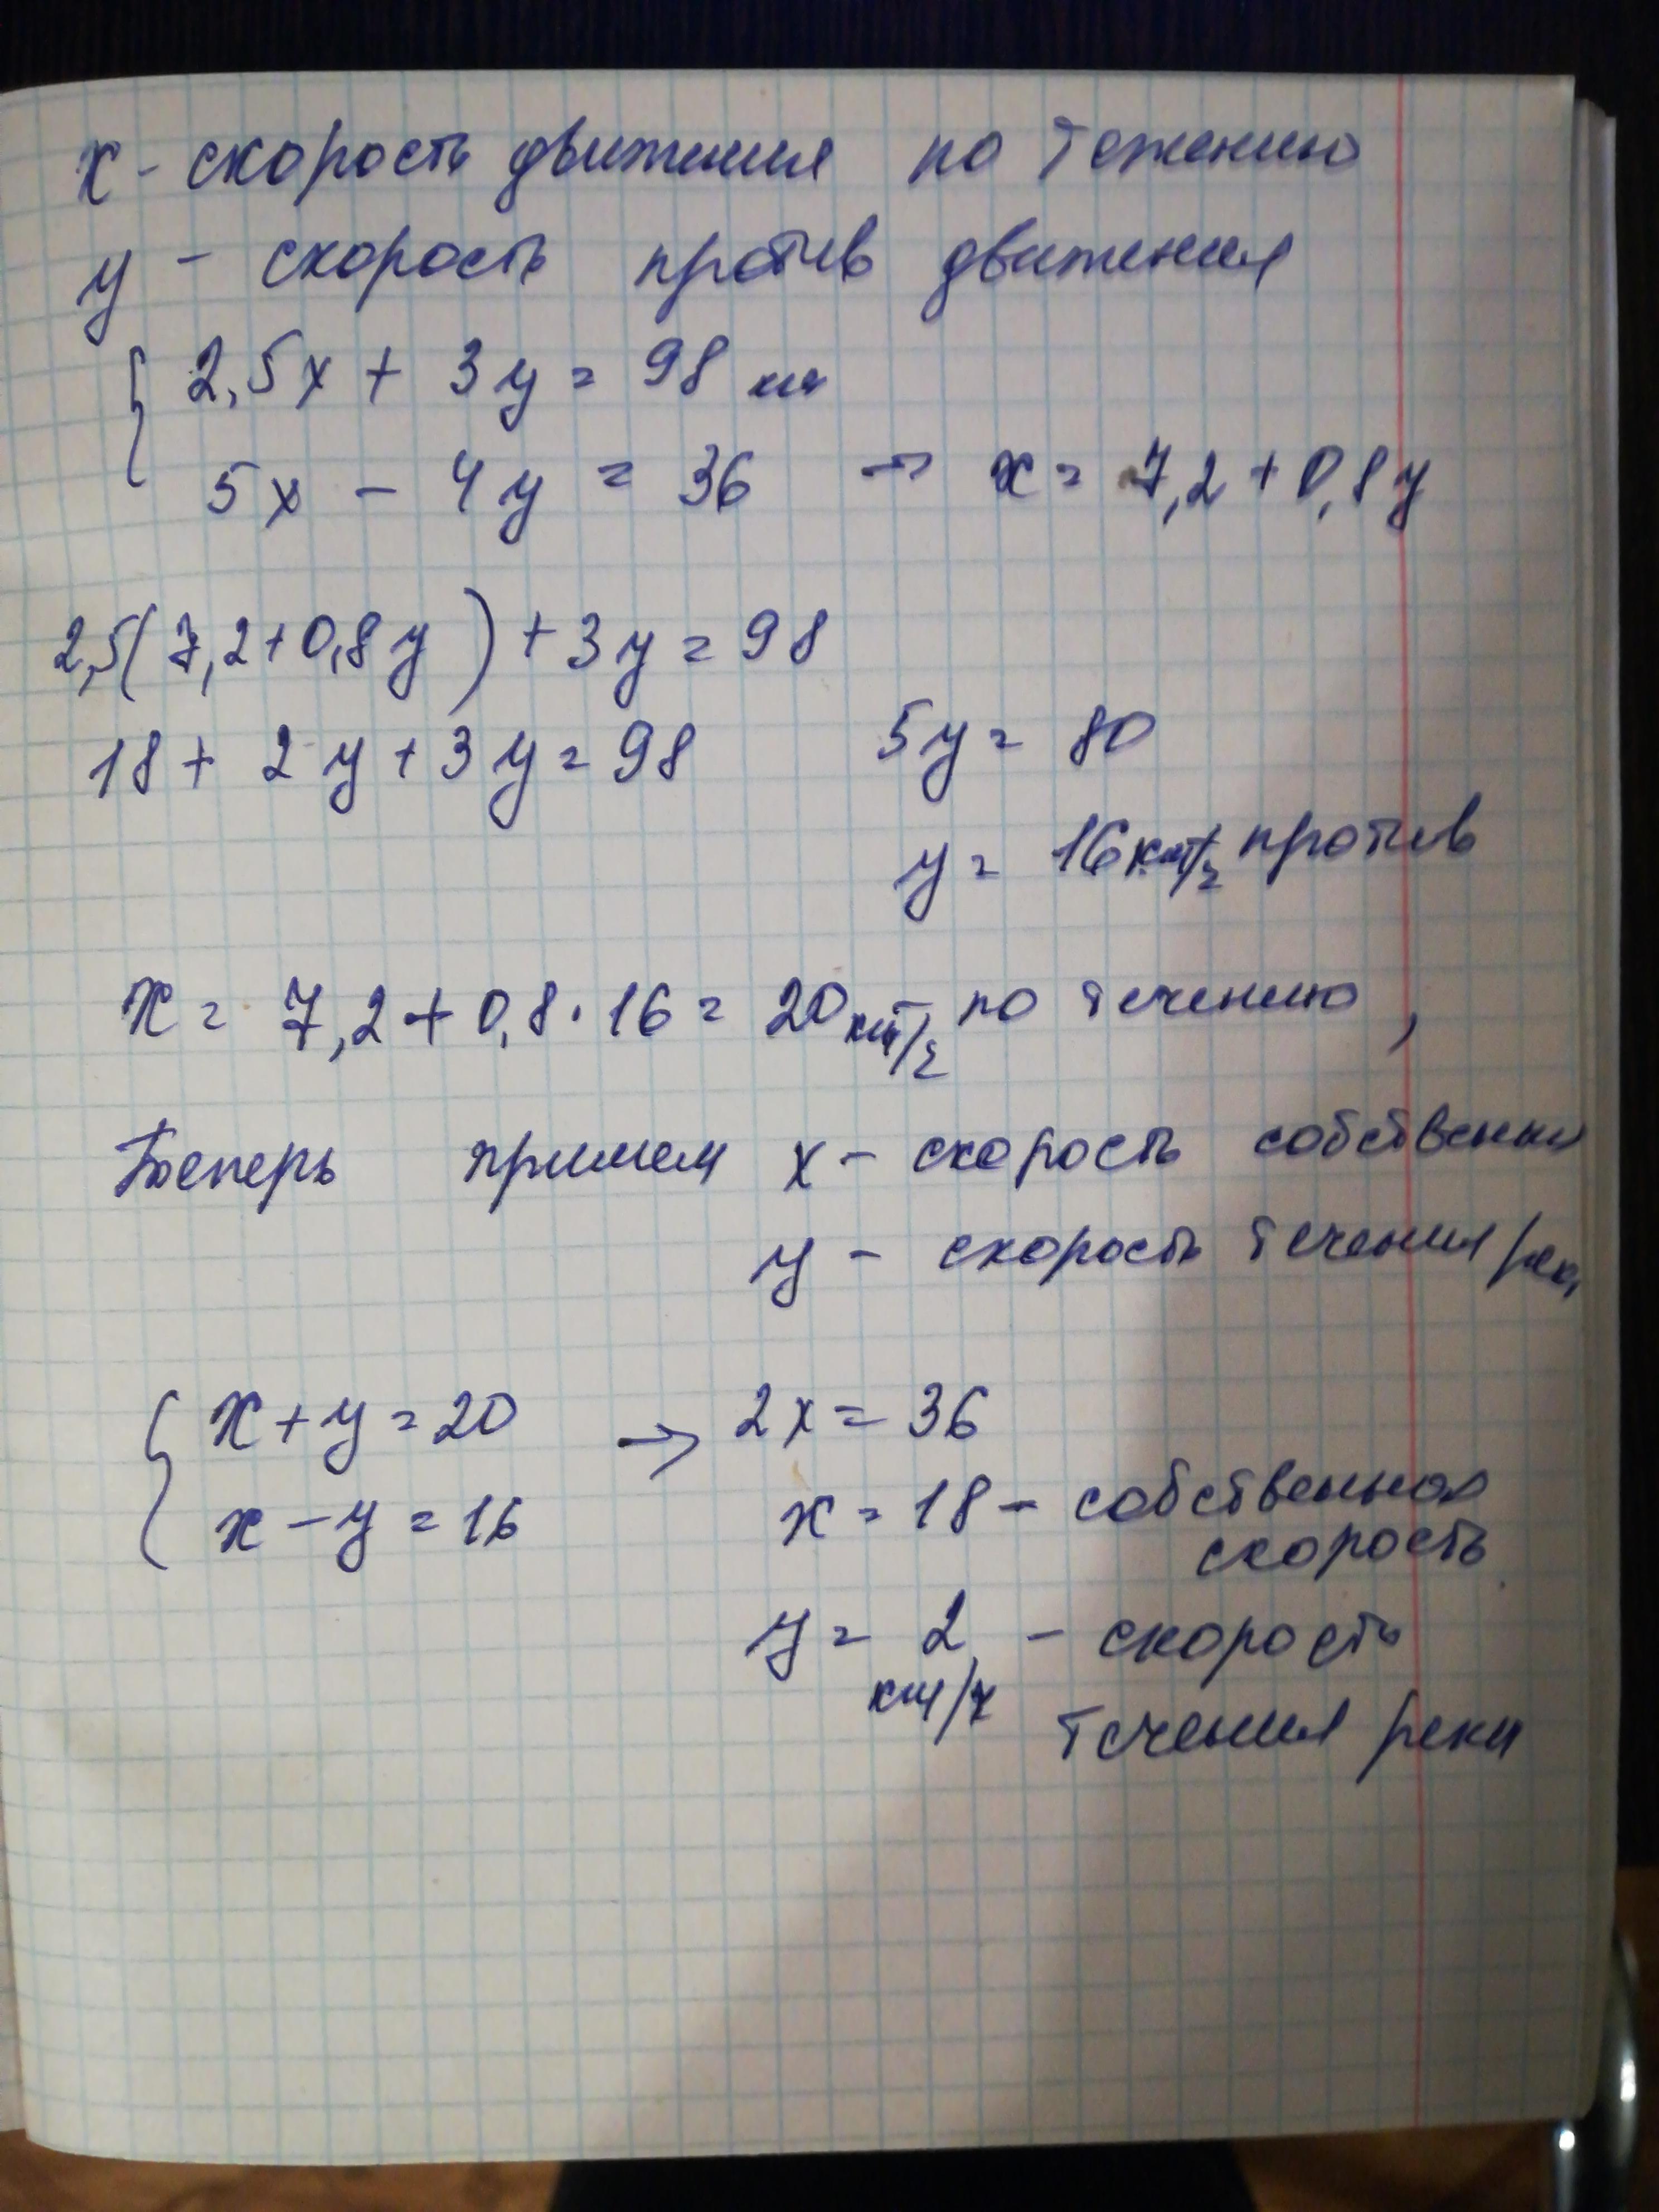 x - скорость движения по течению
y - скорость против движения
2,5x + 3y = 98 км
5x - 4y = 36 → x = 7,2 + 0,8y
2,5(7,2+0,8y) + 3y = 98
18 + 2y + 3y = 98 5y = 80
y = 16 км/ч против
x = 7,2 + 0,8 · 16 = 20 км/ч по течению,
Теперь примем x - скорость собственн
y - скорость течения реки
x + y = 20 → 2x = 36
x - y = 16 x = 18 - собственная
скорость
y = 2 - скорость
км/ч течения реки